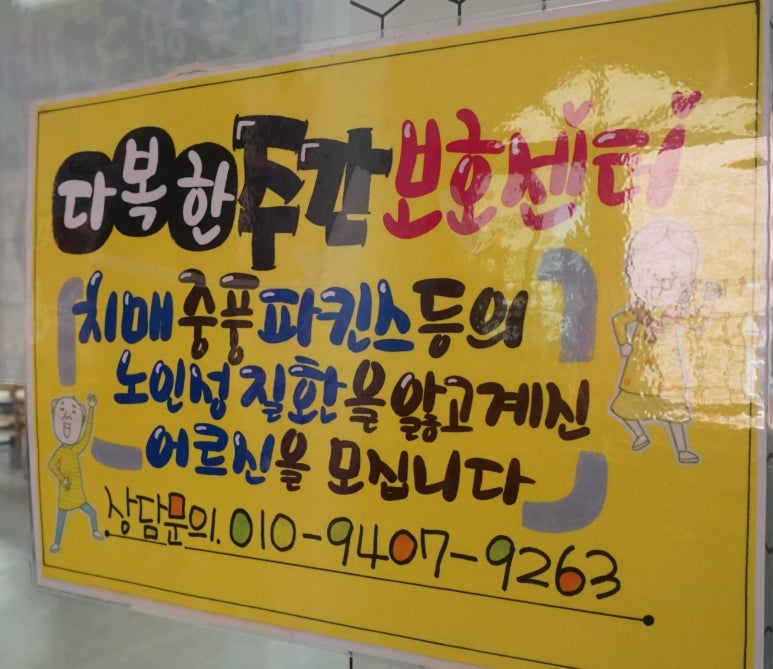 다복한 주간보호센터
치매 중풍 파킨스등의
노인성 질환을 앓고계신
어르신을 모십니다
상담문의. 010-9407-9263